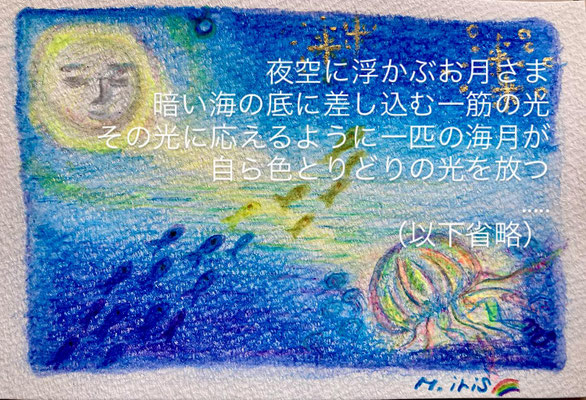 夜空に浮かぶお月さま
暗い海の底に差し込む一筋の光
その光に応えるように一匹の海月が
自ら色とりどりの光を放つ
.....
（以下省略）
M.iris